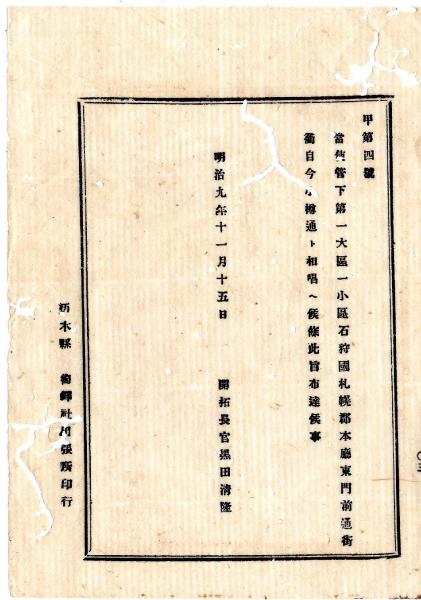 甲第四號
當使管下第一大區一小區石狩國札幌郡本廳東門前通街
衢自今小樽通ト相唱ヘ候條此旨布達候事
明治九年十一月十五日　開拓長官黒田清隆
縣　社出張所印行